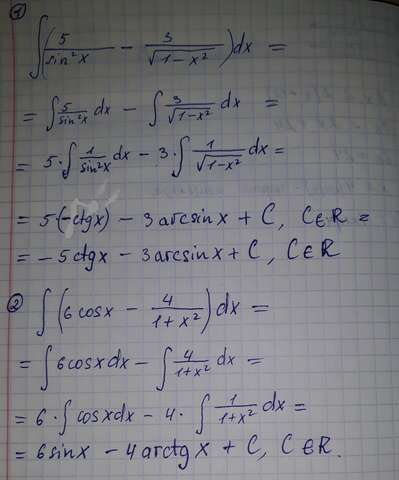 ① ∫(5/sin²x − 3/√(1−x²))dx =
= ∫5/sin²x dx − ∫3/√(1−x²) dx =
= 5·∫1/sin²x dx − 3·∫1/√(1−x²) dx =
= 5·(−ctgx) − 3arcsinx + C, C∈R =
= −5ctgx − 3arcsinx + C, C∈R
② ∫(6cosx − 4/(1+x²))dx =
= ∫6cosxdx − ∫4/(1+x²) dx =
= 6·∫cosxdx − 4·∫1/(1+x²) dx =
= 6sinx − 4arctgx + C, C∈R.